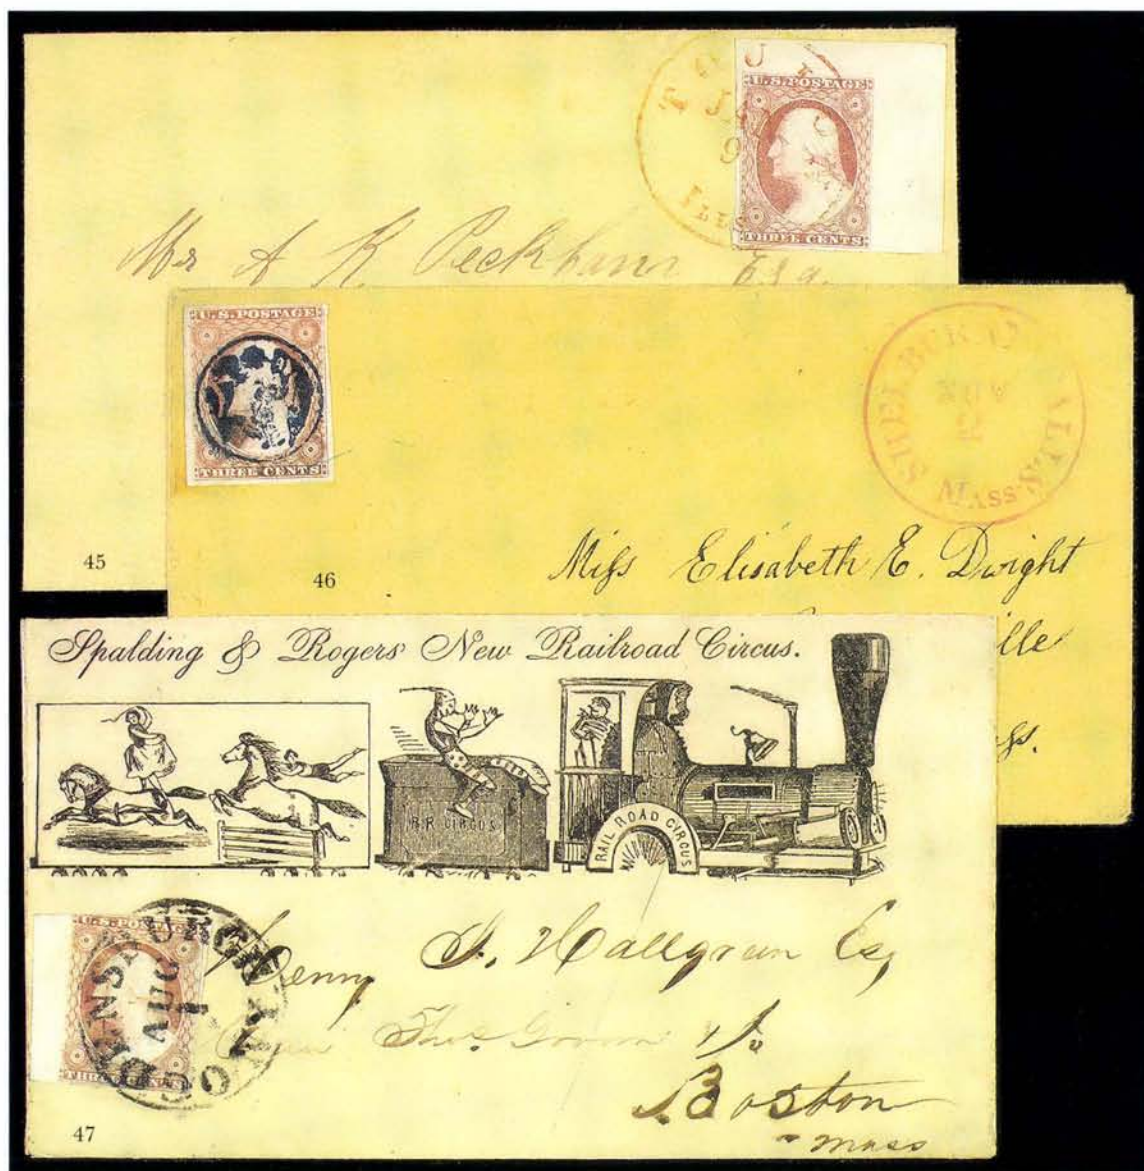 U.S. POSTAGE
THREE CENTS
TOU
JAN
9
ILLS
Mr A K Peckham Esq.
45
U.S. POSTAGE
THREE CENTS
SHELBURNE FALLS
NOV
MASS.
Miss Elisabeth E. Dwight
ille
ss.
46
Spalding & Rogers' New Railroad Circus.
R.R CIRCUS
RAIL ROAD CIRCUS
U.S. POSTAGE
THREE CENTS
OGDENSBURGH N.Y.
AUG
1
Henny D. Hallgreen Esq
Boston
Mass
47